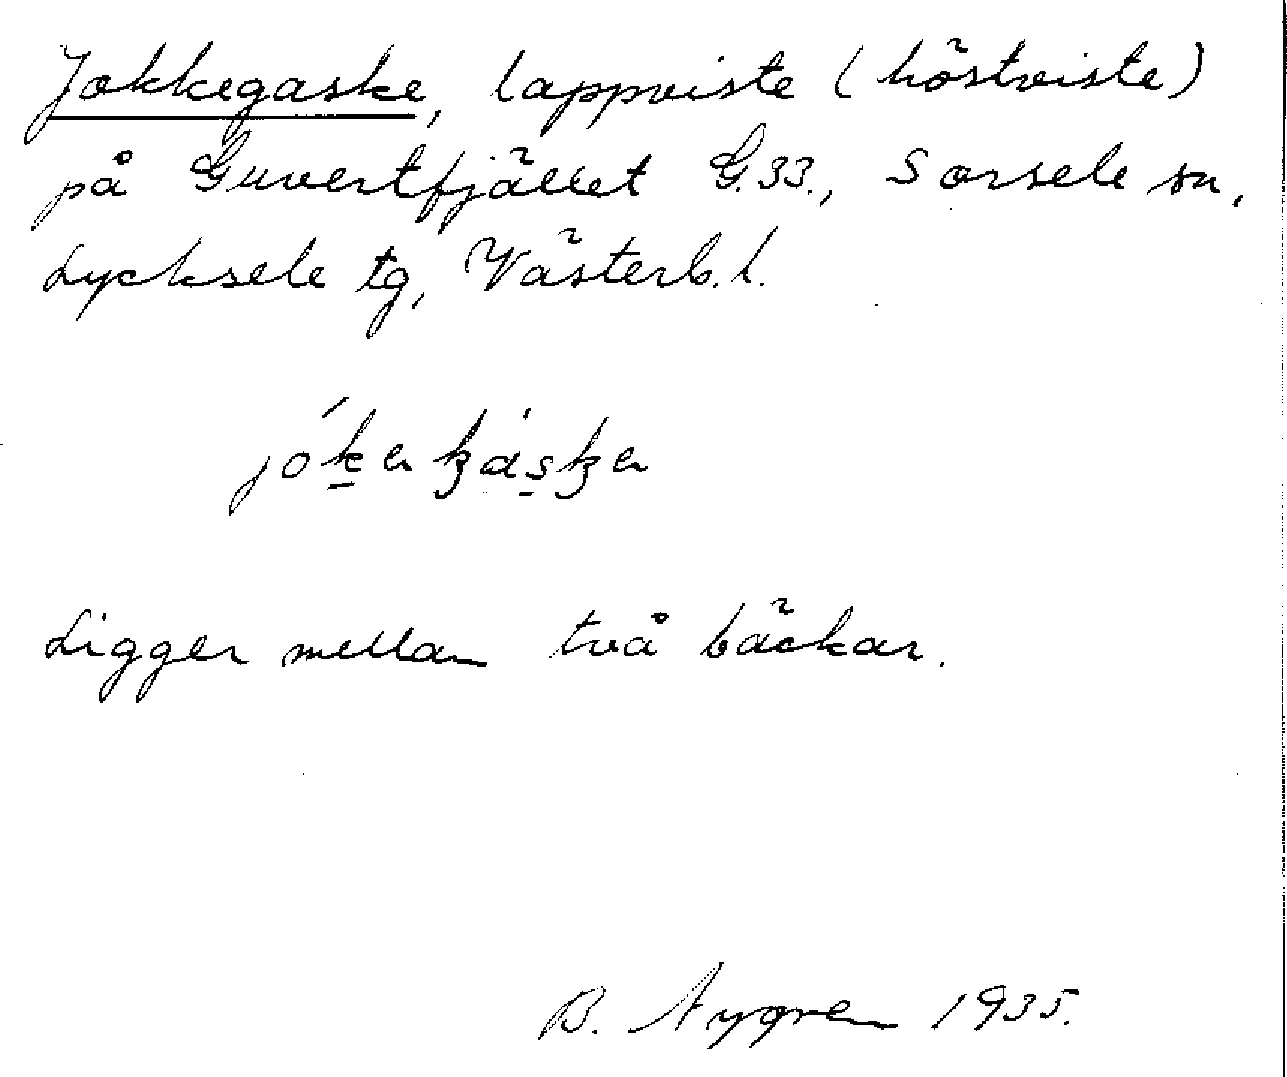 Jokkegaske, lappviste (höstviste)
på Guvertfjället G.33., Sorsele sn,
Lycksele tg, Västerb. l.
Ligger mellan två bäckar.
B. Nygren 1935.